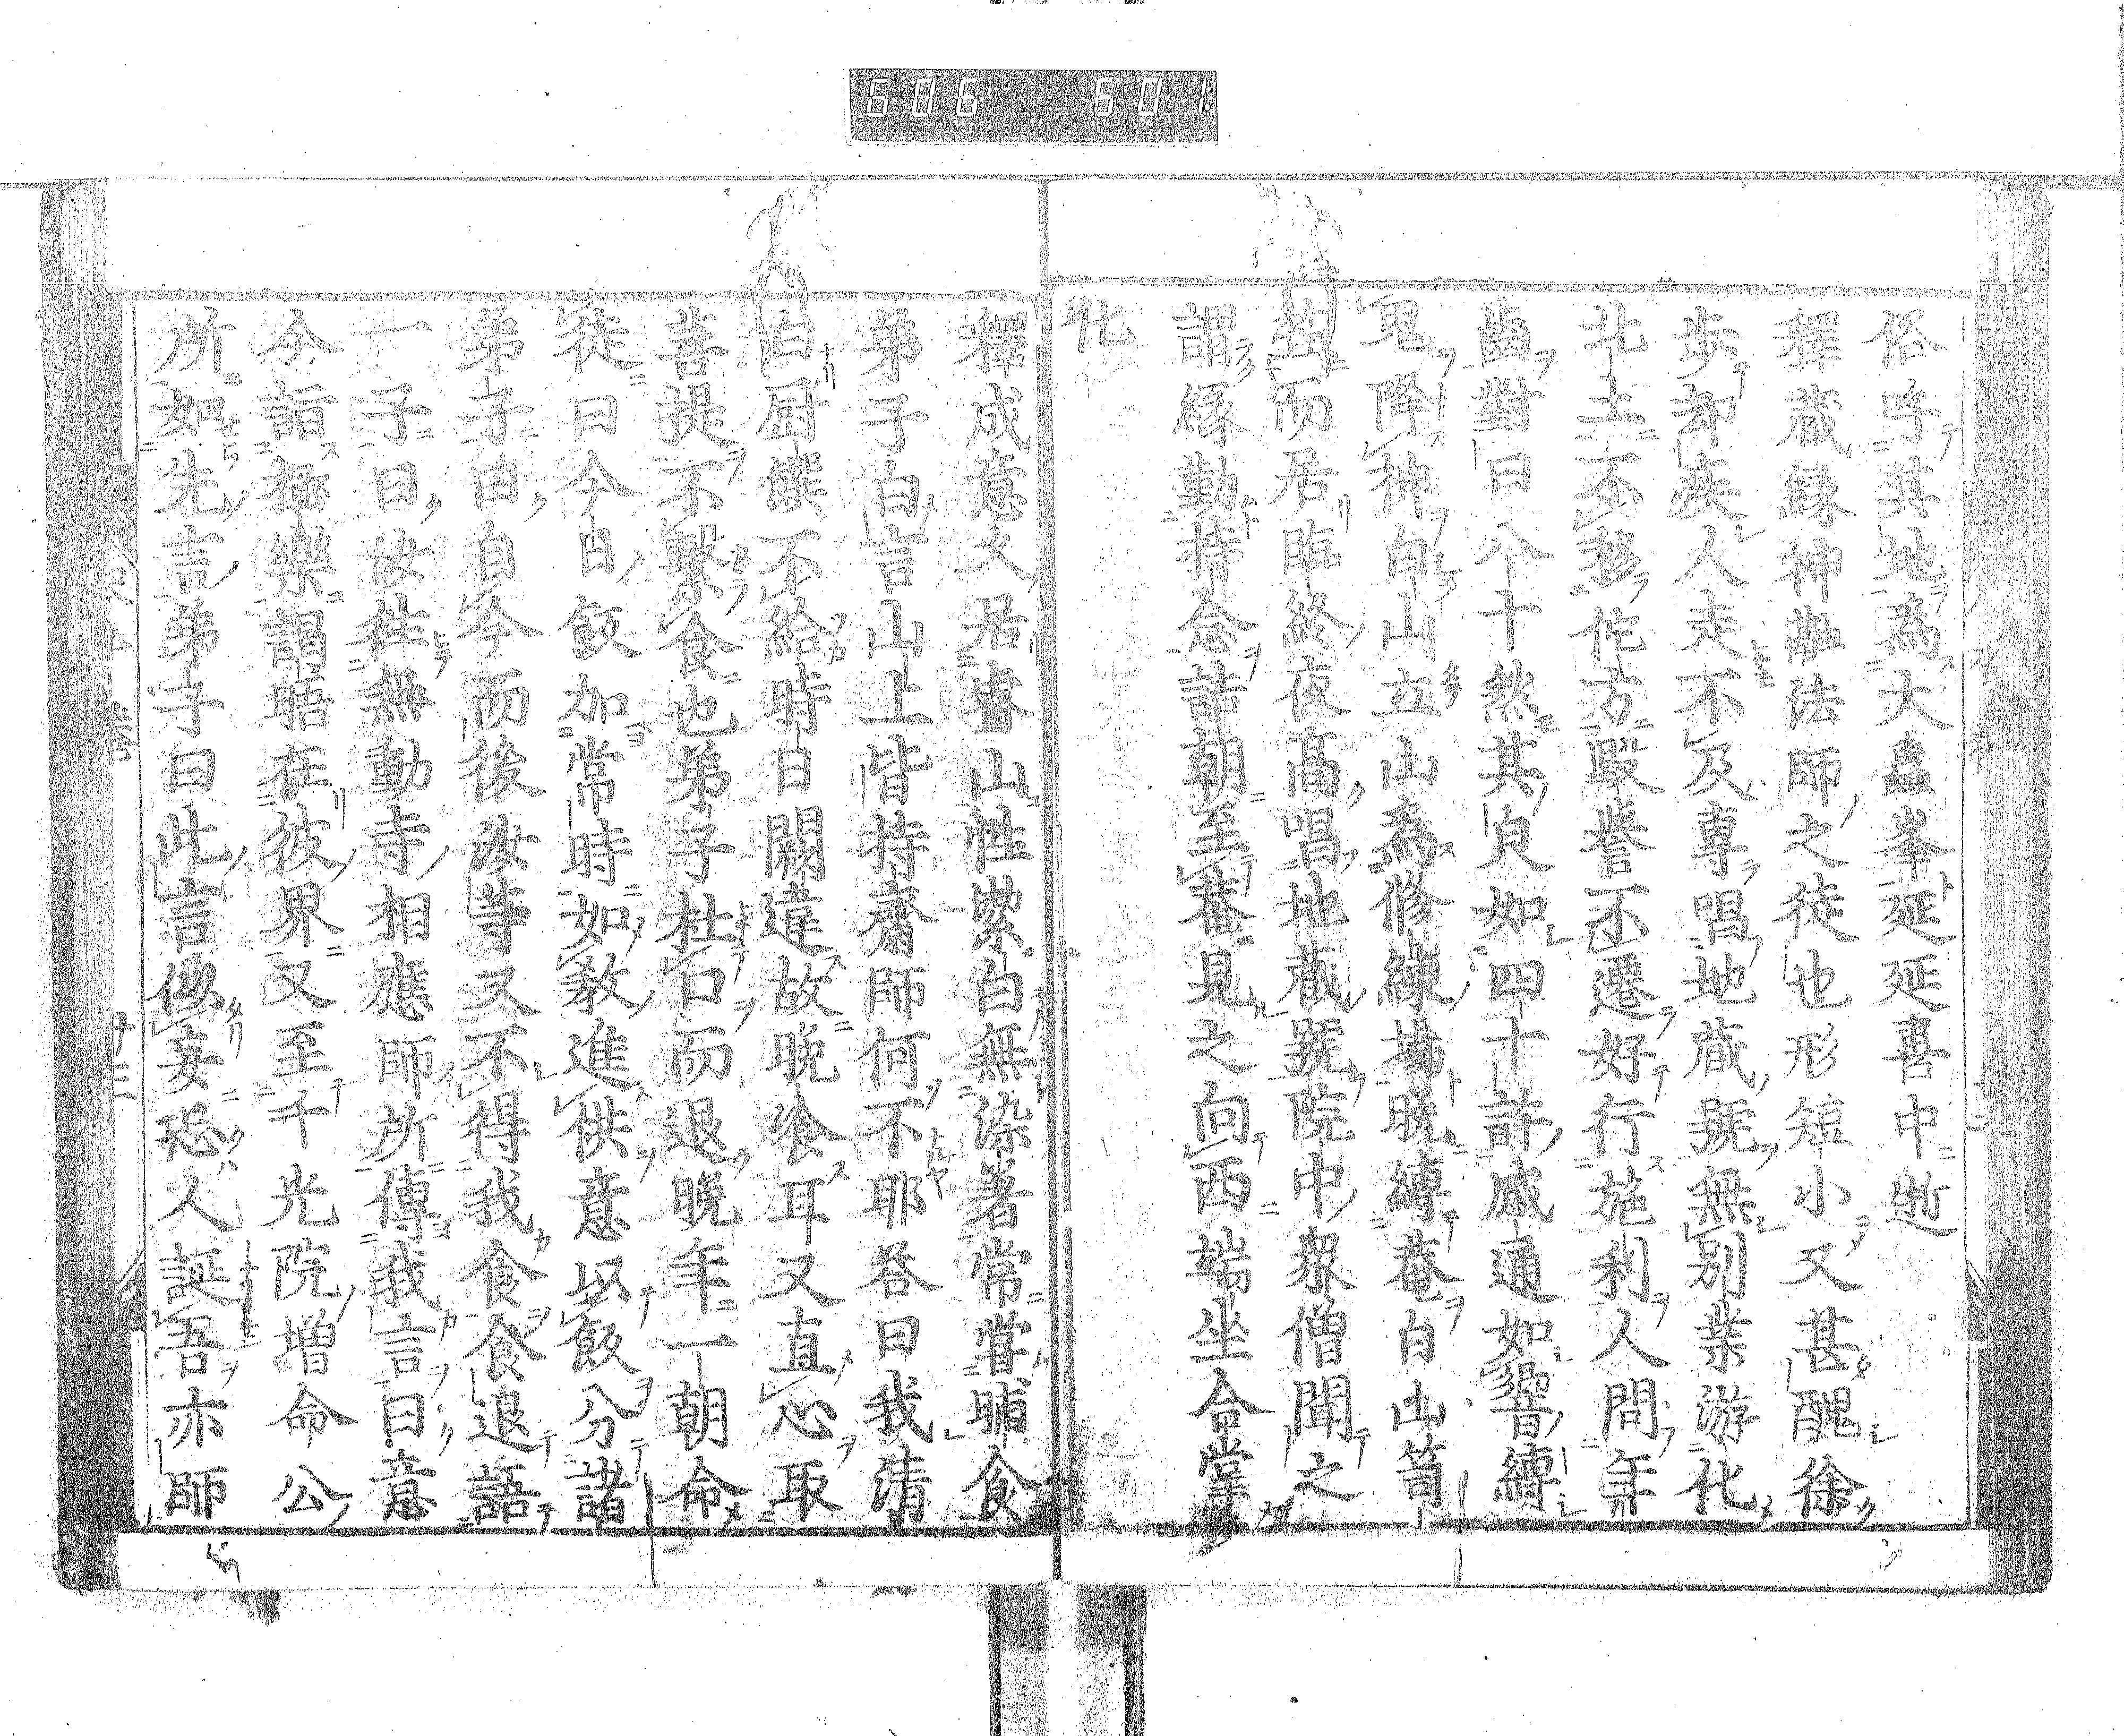 606 601
俗呼其地爲大蟲峯延延喜中逝
釋蔵緣神融法師之徒也形短小又甚醜徐
步却疾人走不及專唱地蔵號無別業游化
北土不移他方毀譽不遷好行施利人問年
齒對曰八十然其皃如四十許感通如響縛
鬼降神白山立山爲修練場晚縛菴白山笥
而居臨終夜高唱地蔵號院中衆僧聞之
謂緣勤持念詰朝至菴見之向西端坐合掌
化
釋成意久居睿山性潔白無染著常嘗晡食
弟子白言山上皆持齋師何不耶答曰我清
白厨饌不給時日闕違故晚飡耳又直心取
菩提不繫食也弟子杜口而退晚年一朝命
徒曰今日飯加常時如教進供意以飯分諸
弟子曰自今而後汝等又不得我食食退語
一子曰汝徃無動寺相應師所傳我言曰意
今詣極樂謁晤在彼界又至千光院增命公
所如先言弟子曰此言似妄恐人誕吾亦師